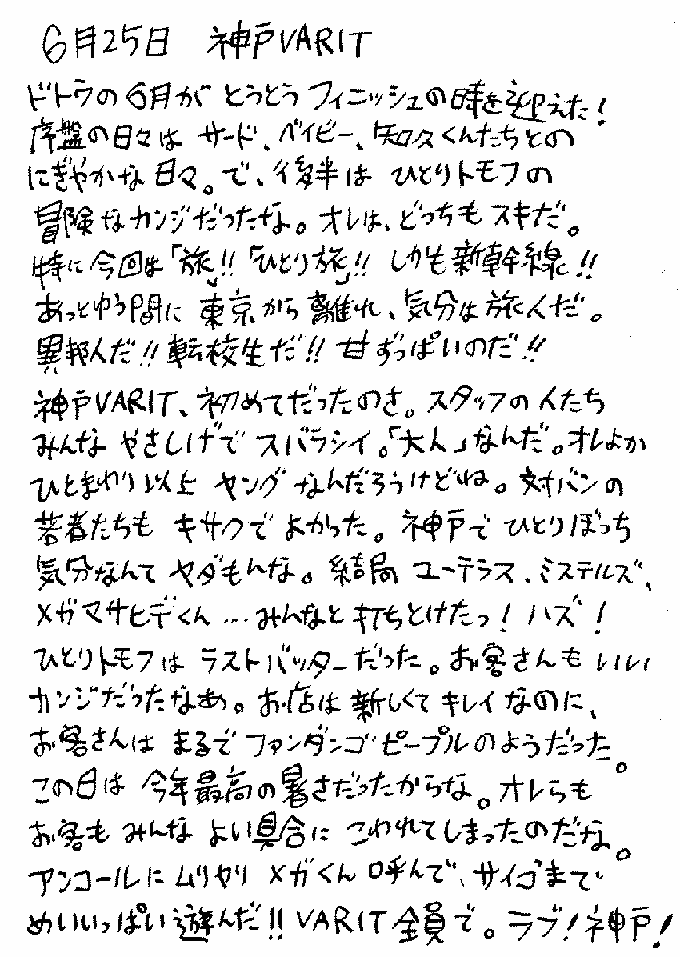 6月25日 神戸VARIT
ドトウの6月が とうとう フィニッシュの時を迎えた!
序盤の日々は サード、ベイビー、知久くんたちとの
にぎやかな日々。で、後半は ひとりトモフの
冒険なカンジだったな。オレは、どっちもスキだ。
特に今回は「旅」!!「ひとり旅」!! しかも新幹線!!
あっとゆう間に 東京から離れ、気分は旅人だ。
異邦人だ!!転校生だ!! 甘ずっぱいのだ!!
神戸VARIT、初めてだったのさ。スタッフの人たち
みんな やさしげで スバラシイ。「大人」なんだ。オレよか
ひとまわり以上 ヤング なんだろうけどね。対バンの
若者たちも キサクで よかった。神戸で ひとりぼっち
気分なんて ヤダもんな。結局 ユーテラス、ミステルズ、
メガマサヒデくん…みんなと打ちとけたっ!ハズ!
ひとりトモフは ラストバッターだった。お客さんも いい
カンジだったなあ。お店は新しくてキレイなのに、
お客さんは まるで ファンダンゴピープルのようだった。
この日は 今年最高の暑さだったからな。オレらも
お客も みんな よい具合に こわれてしまったのだな。
アンコールに ムリヤリ メガくん呼んで、サイゴまで
めいいっぱい遊んだ!! VARIT全員で。ラブ!神戸!